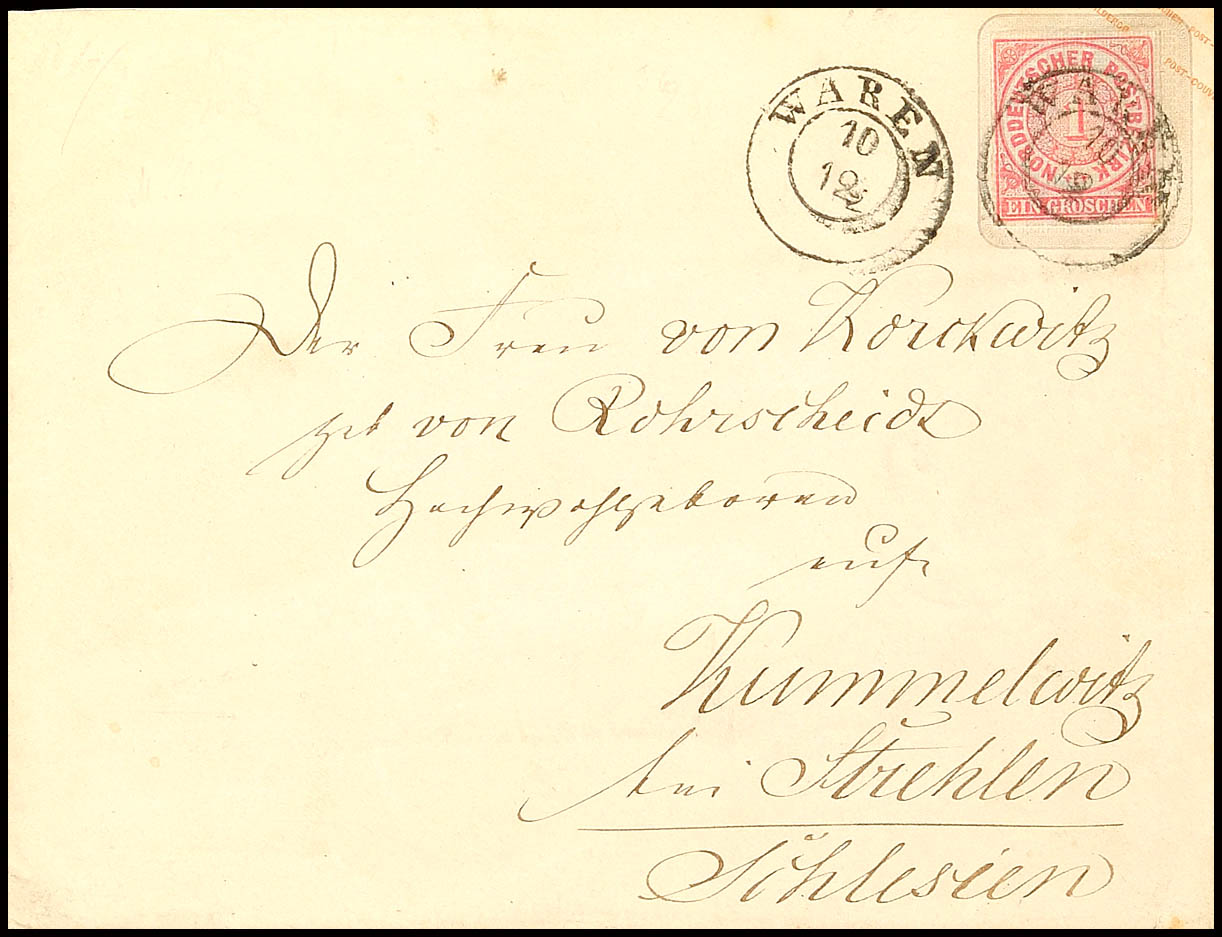 WAREN
10
12
NORDDEUTSCHER POSTBEZIRK
1
EIN GROSCHEN
POST-COUVE
Der Frau von Korckwitz
geb von Rohrscheidt
Hochwohlgeboren
auf
Kummelwitz
bei Strehlen
Schlesien